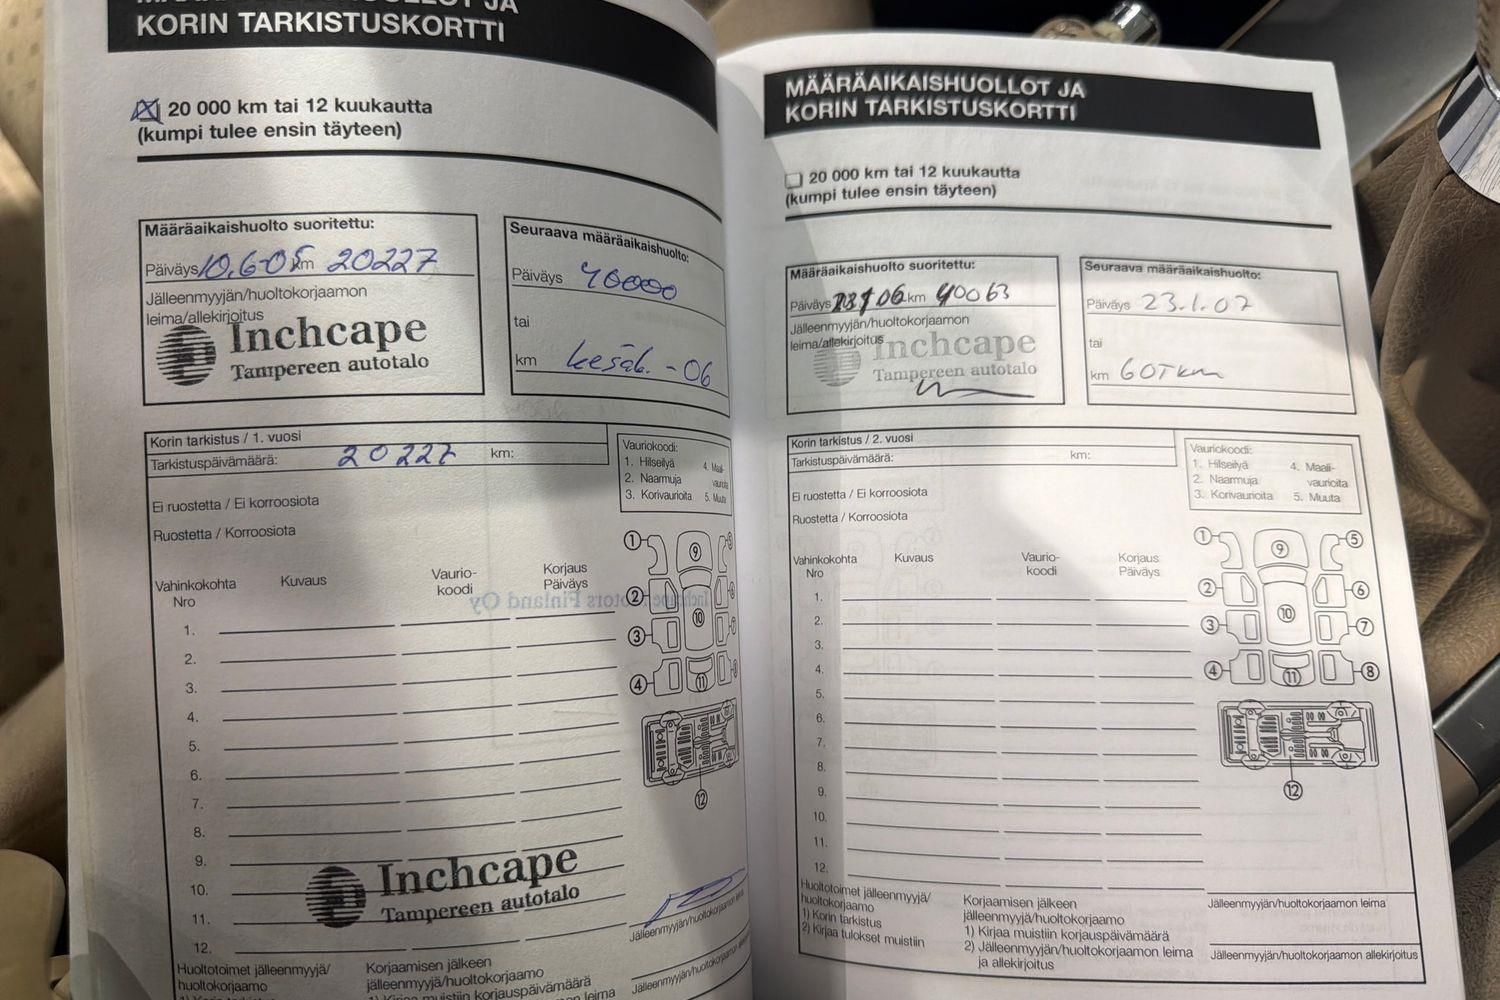 KORIN TARKISTUSKORTTI
20 000 km tai 12 kuukautta
(kumpi tulee ensin täyteen)
Määräaikaishuolto suoritettu:
Päiväys 10.6-05 km 20227
Jälleenmyyjän/huoltokorjaamon
leima/allekirjoitus
Inchcape
Tampereen autotalo
Seuraava määräaikaishuolto:
Päiväys 40000
tai
km kesäk. -06
Korin tarkistus / 1. vuosi
Tarkistuspäivämäärä: 20227 km:
Ei ruostetta / Ei korroosiota
Ruostetta / Korroosiota
Vauriokoodi:
1. Hilseilyä 4. Maali-
2. Naarmuja vaurioita
3. Korivaurioita 5. Muuta
Vahinkokohta Kuvaus Vaurio- Korjaus
Nro koodi Päiväys
1.
2.
3.
4.
5.
6.
7.
8.
9.
10.
11.
12.
1
2
3
4
9
10
11
12
Inchcape
Tampereen autotalo
Huoltotoimet jälleenmyyjä/
huoltokorjaamo
Korjaamisen jälkeen
jälleenmyyjä/huoltokorjaamo
1) Kirjaa muistiin korjauspäivämäärä
MÄÄRÄAIKAISHUOLLOT JA
KORIN TARKISTUSKORTTI
20 000 km tai 12 kuukautta
(kumpi tulee ensin täyteen)
Määräaikaishuolto suoritettu:
Päiväys km 40063
Jälleenmyyjän/huoltokorjaamon
leima/allekirjoitus
Inchcape
Tampereen autotalo
Seuraava määräaikaishuolto:
Päiväys 23.1.07
tai
km 60Tkm
Korin tarkistus / 2. vuosi
Tarkistuspäivämäärä: km:
Ei ruostetta / Ei korroosiota
Ruostetta / Korroosiota
Vauriokoodi:
1. Hilseilyä 4. Maali-
2. Naarmuja vaurioita
3. Korivaurioita 5. Muuta
Vahinkokohta Kuvaus Vaurio- Korjaus
Nro koodi Päiväys
1.
2.
3.
4.
5.
6.
7.
8.
9.
10.
11.
12.
1
2
3
4
5
6
7
8
9
10
11
12
Huoltotoimet jälleenmyyjä/
huoltokorjaamo
1) Korin tarkistus
2) Kirjaa tulokset muistiin
Korjaamisen jälkeen
jälleenmyyjä/huoltokorjaamo
1) Kirjaa muistiin korjauspäivämäärä
2) Jälleenmyyjän/huoltokorjaamon leima
ja allekirjoitus
Jälleenmyyjän/huoltokorjaamon leima
Jälleenmyyjän/huoltokorjaamon allekirjoitus